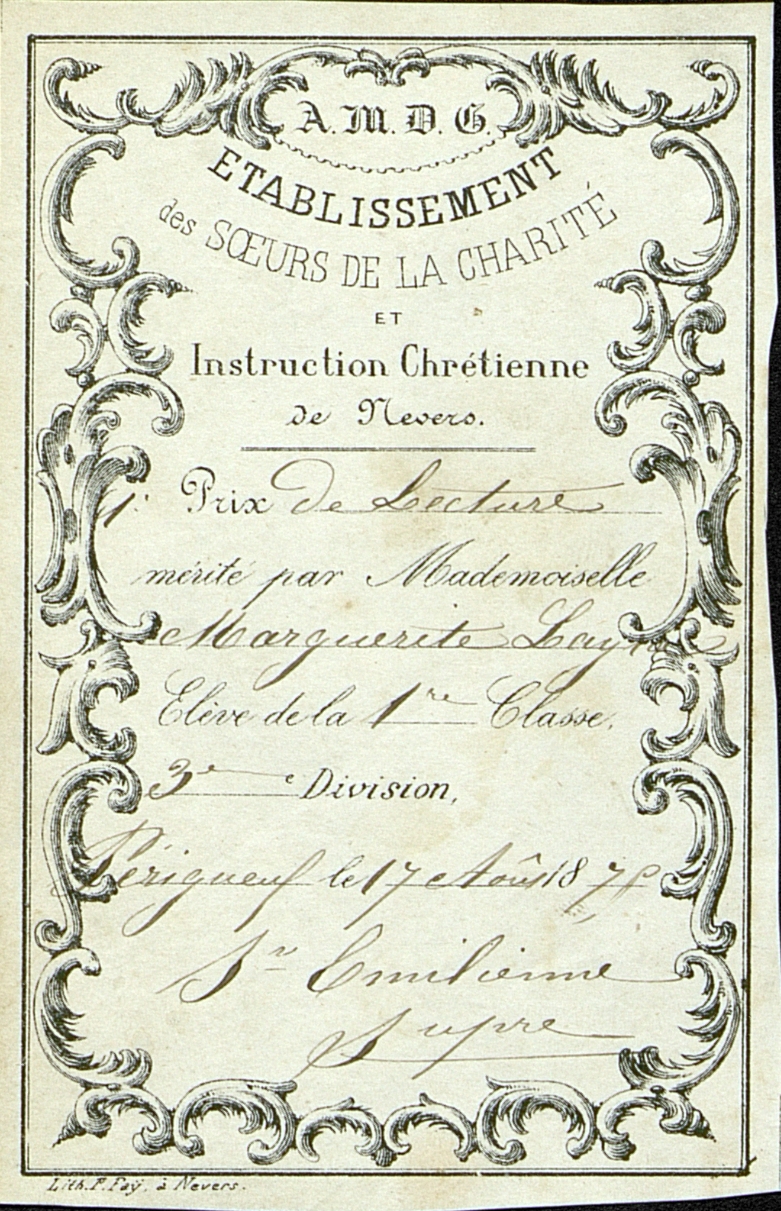 A. M. D. G.
ETABLISSEMENT
des SŒURS DE LA CHARITÉ
ET
Instruction Chrétienne
de Nevers.
1r Prix de Lecture
mérité par Mademoiselle
Marguerite
Elève de la 1re Classe.
3e e Division,
Périgueux le 17 Août 18
Sr Emilienne
Supre
Lith. P. Faÿ, à Nevers.